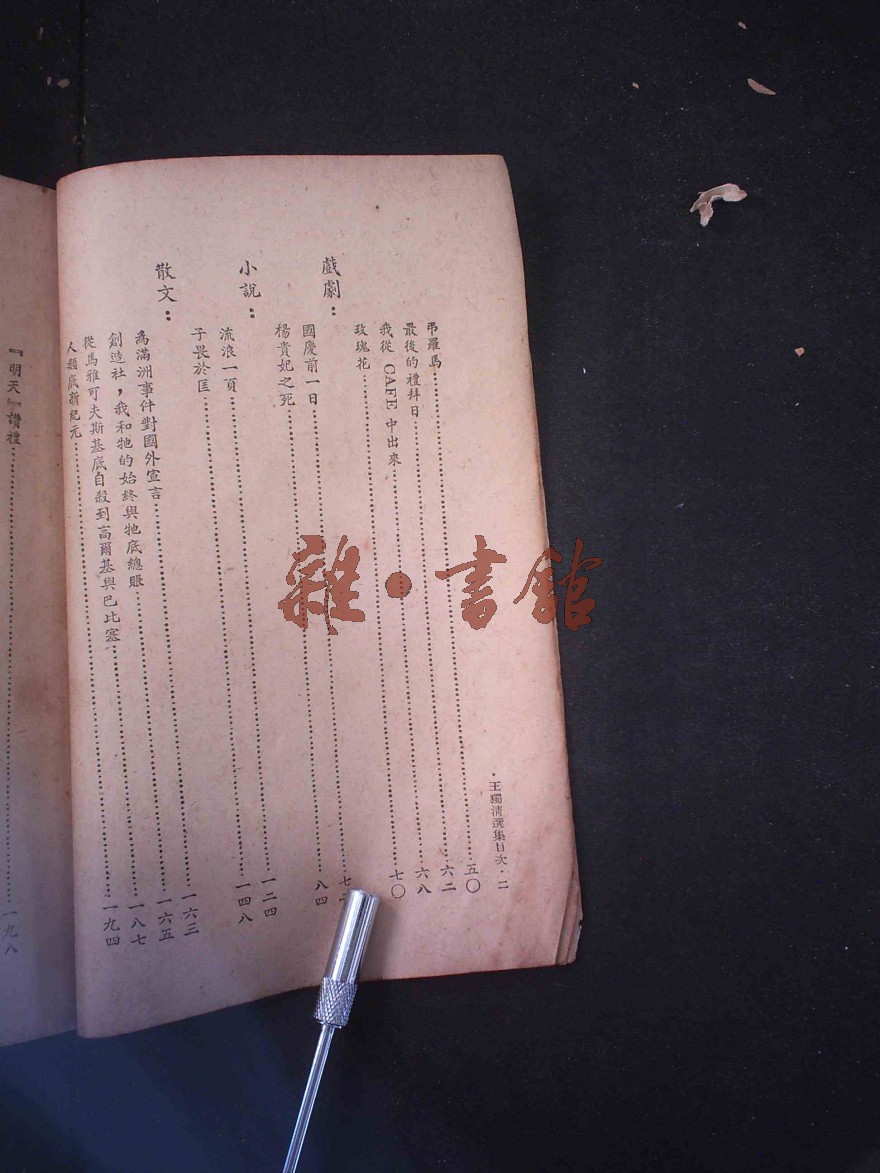 ・王獨清選集目次・二
弔羅馬……五〇
最後的禮拜日……六二
我從 CAFE 中出來……六八
玫瑰花……七〇
戲劇：
國慶前一日……七
楊貴妃之死……八四
小說：
流浪一頁……一二四
子畏於匡……一四八
散文：
為滿洲事件對國外宣言……一六三
創造社，我和牠的始終與牠底總賬……一六五
從馬雅可夫斯基底自殺到高爾基與巴比塞……一八七
人類底新紀元……一九四
『明天』讚禮……一九八
雜・書館